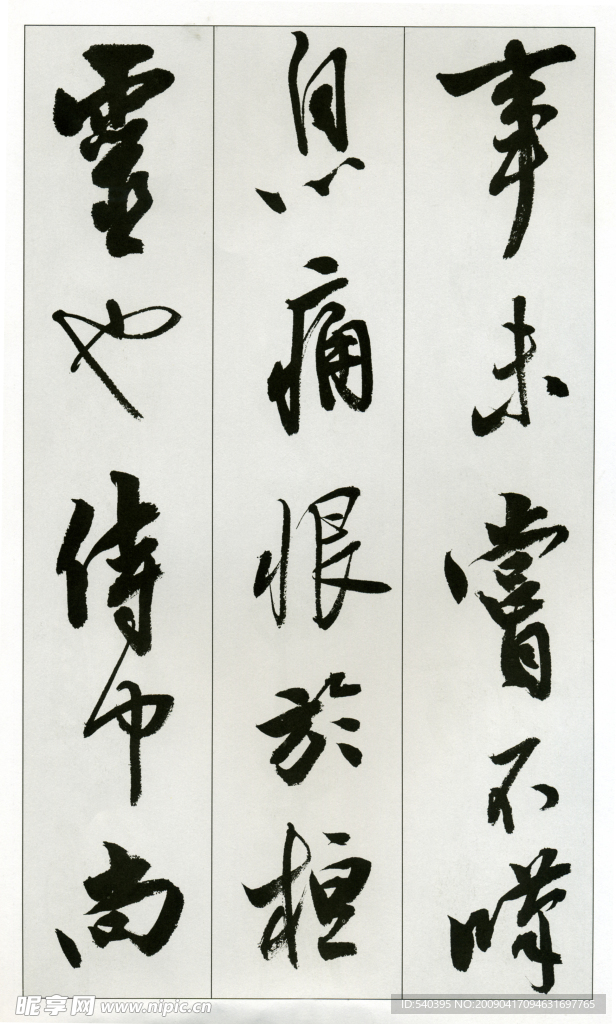 事未嘗不嘆
息痛恨於桓
靈也侍中尚
昵享网 www.nipic.cn
ID:540395 NO:20090417094631697765